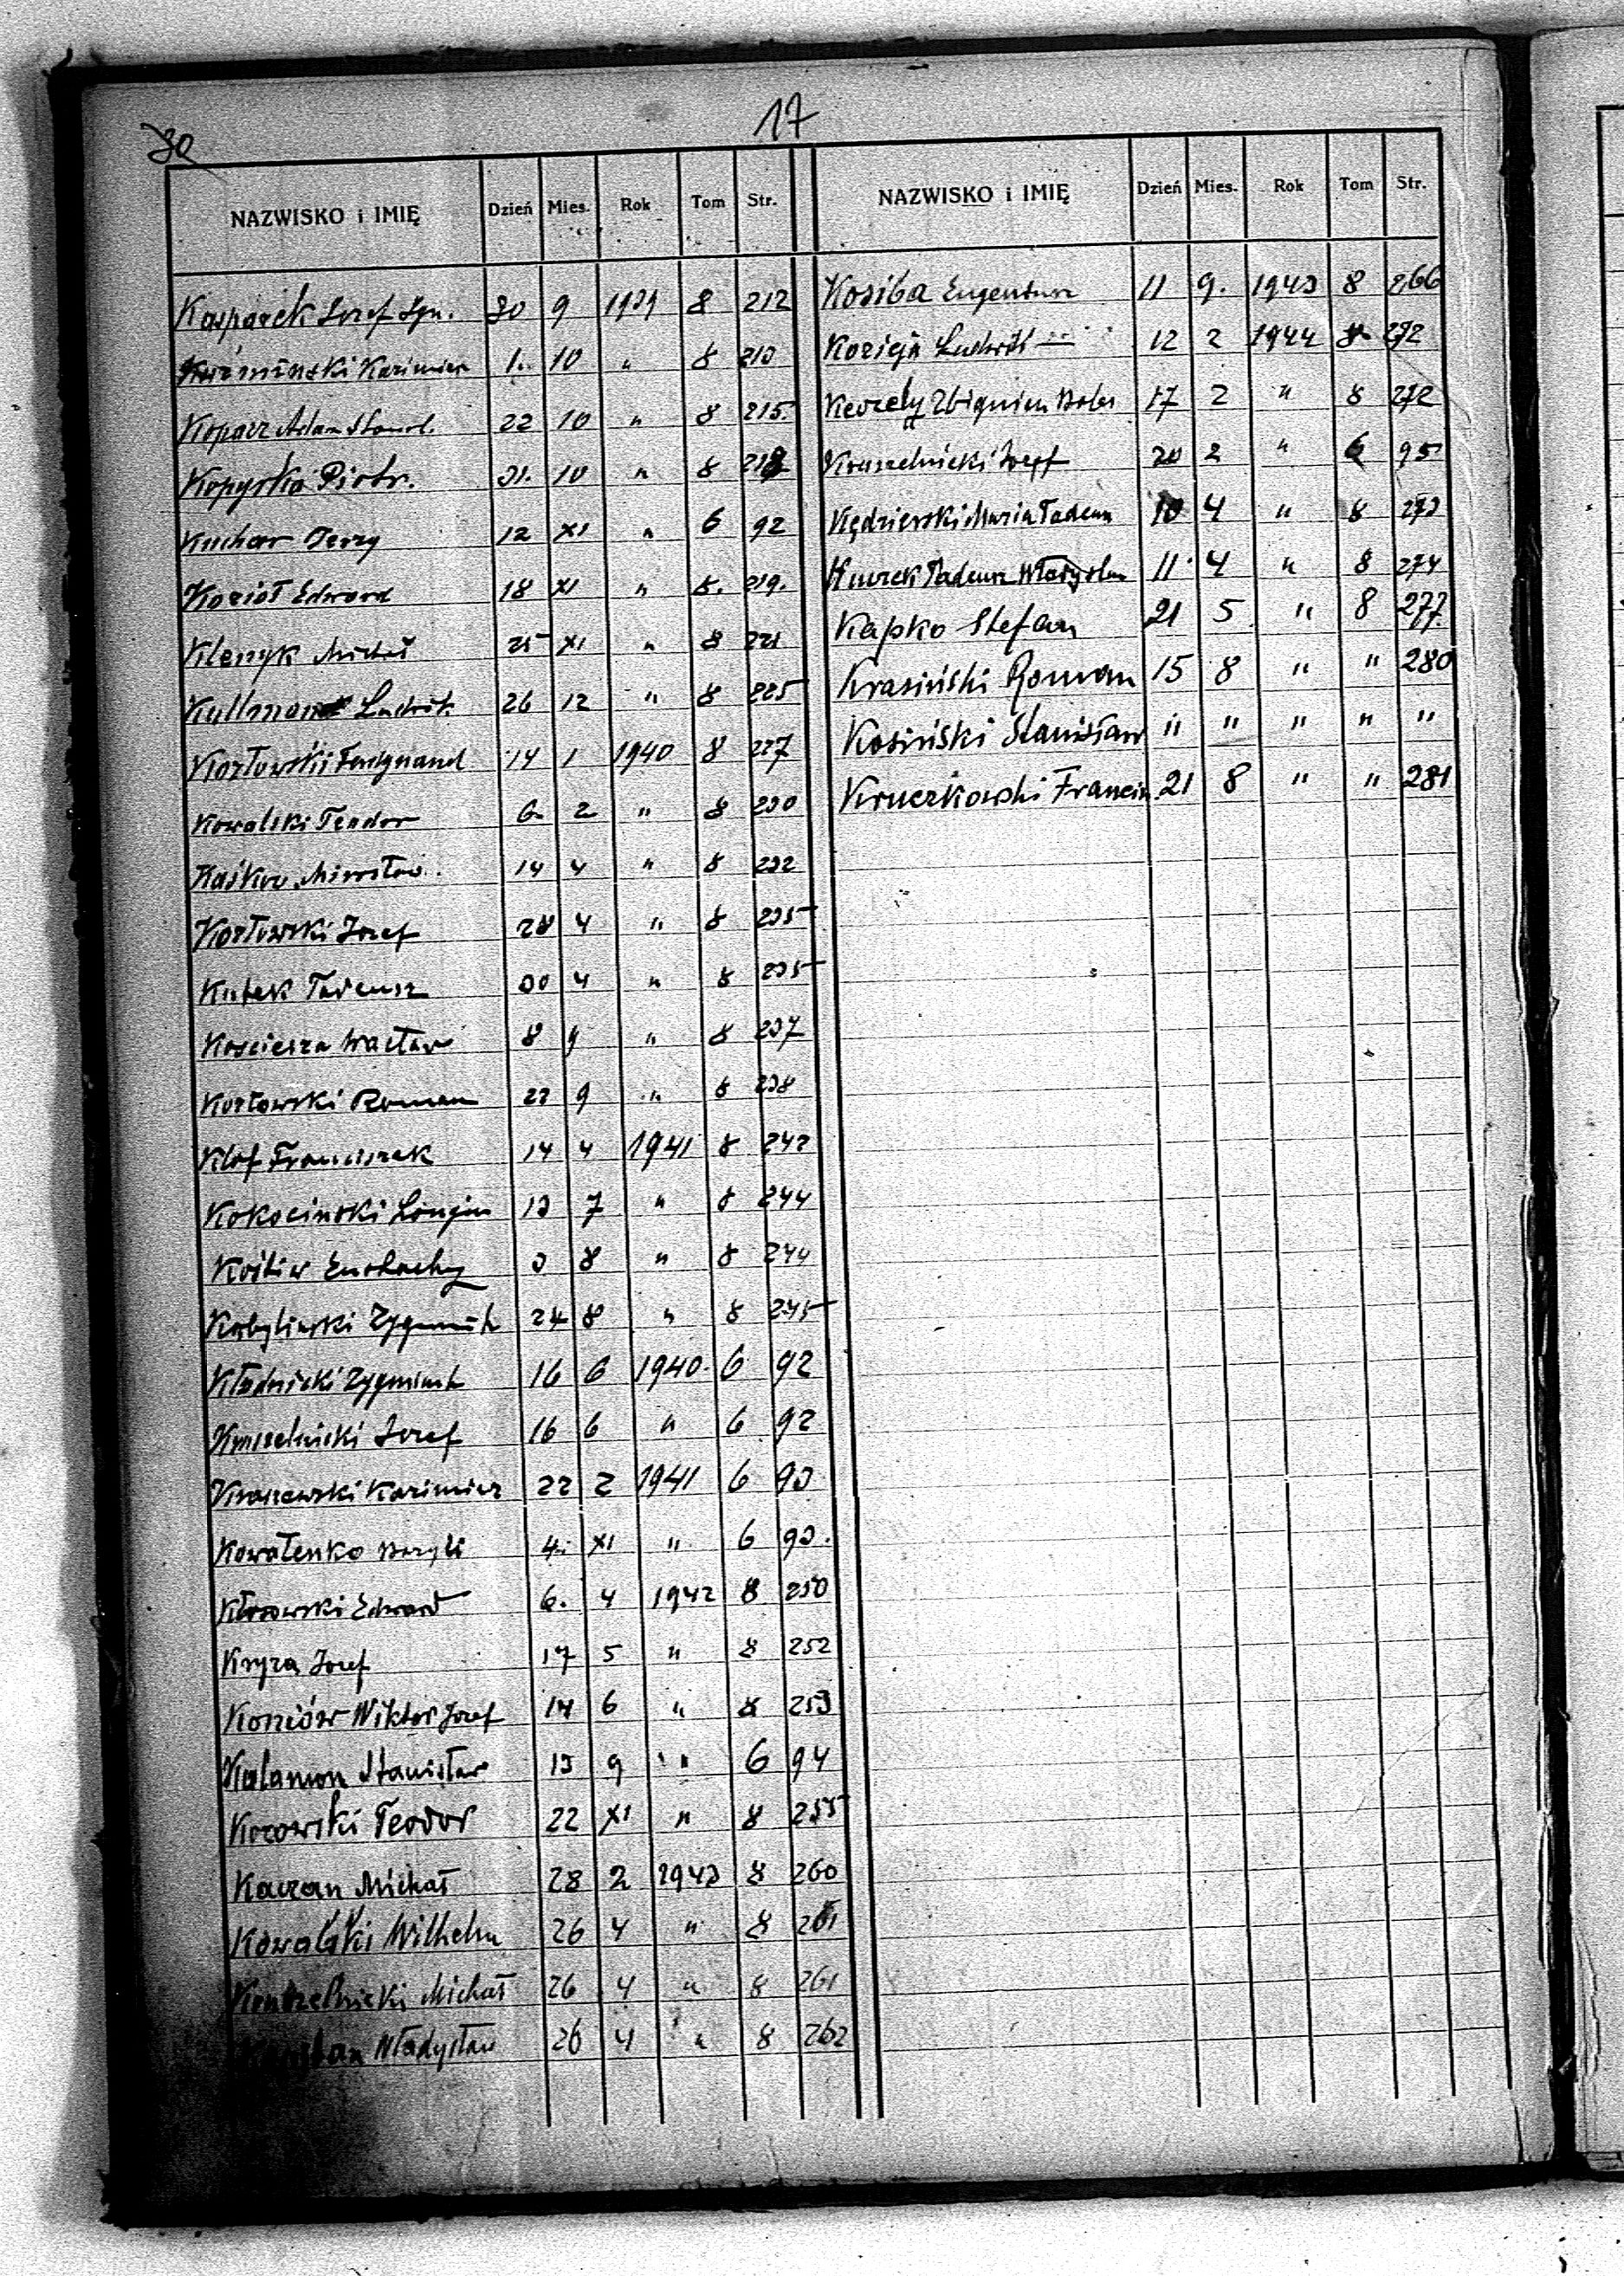 30
17
NAZWISKO i IMIĘ Dzień Mies. Rok Tom Str.
Kasparek Józef Syn. 30 9 1939 8 212
Kuźmiński Kazimierz 1. 10 " 8 213
Koparz Adam 22 10 " 8 215.
Kopystka Piotr. 31. 10 " 8 218
Kuchar Jerzy 12 XI " 6 92
Kozioł Edward 18 XI " 8. 219.
Klenyk Michał 25 XI " 8 221
Kullman Ludwik 26 12 " 8 225
Kozłowski Ferdynand 14 1 1940 8 227
Kowalski Teodor 6 2 " 8 230
Kaśków Mirosław. 14 4 " 8 232
Kozłowski Józef 28 4 " 8 235
Kutek Tadeusz 30 4 " 8 235
Kosciesza Wacław 8 9 " 8 237
Kozłowski Roman 22 9 " 8 238
Klof Franciszek 14 4 1941 8 242
Kokocinski Longin 13 7 " 8 244
Kośtiw Eustachy 3 8 " 8 244
Kobylinski Zygmunt 24 8 " 8 245
Kłodnicki Zygmunt 16 6 1940 6 92
Kruszelnicki Józef 16 6 " 6 92
Kraszewski Kazimierz 22 2 1941 6 93
Kowalenko Bazyli 4. XI " 6 93.
Kłosowski Edward 6. 4 1942 8 250
Kryza Józef 17 5 " 8 252
Koziów Wiktor Józef 14 6 " 8 253
Kalamon Stanisław 13 9 " 6 94
Kozowski Teodor 22 XI " 8 255
Kaczan Michał 28 2 1943 8 260
Kowalski Wilhelm 26 4 " 8 261
Michał 26 4 " 8 261
Władysław 26 4 " 8 262
NAZWISKO i IMIĘ Dzień Mies. Rok Tom Str.
Kosiba Eugeniusz 11 9. 1943 8 266
Kozieja Ludwik — 12 2 1944 8 272
Keczely Zbigniew 17 2 " 8 272
Kruszelnicki Józef 20 2 " 6 95
Kędzierski Maria Tadeusz 10 4 " 8 273
Kurek Tadeusz Władysław 11 4 " 8 274
Kapko Stefan 21 5 " 8 277
Krasiński Roman 15 8 " " 280
Kosiński Stanisław " " " " "
Kruczkowski Francis. 21 8 " " 281